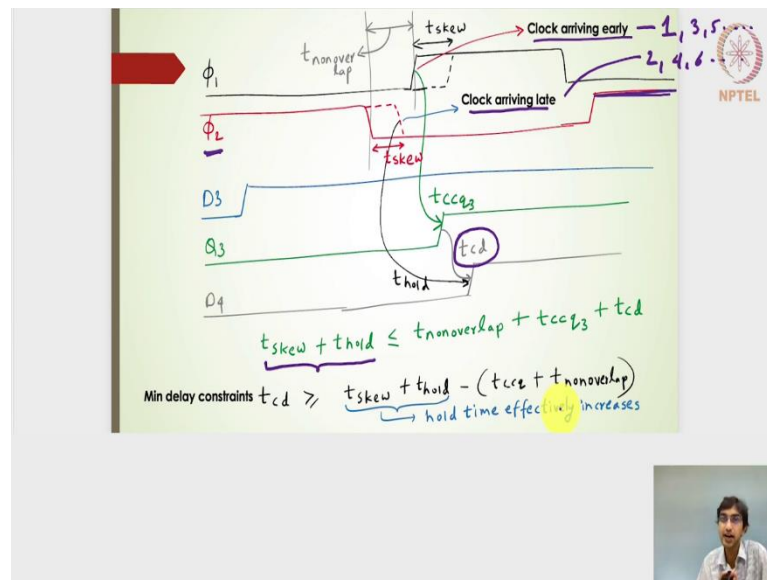 tskew
Clock arriving early — 1, 3, 5 ....
tnonoverlap
2, 4, 6 ...
NPTEL
ϕ1
Clock arriving late
ϕ2
tskew
D3
tccq3
Q3
tcd
thold
D4
tskew + thold ≤ tnonoverlap + tccq3 + tcd
Min delay constraints tcd ≥ tskew + thold - (tccq + tnonoverlap)
hold time effectively increases